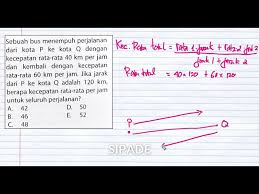 Sebuah bus menempuh perjalanan
dari kota P ke kota Q dengan
kecepatan rata-rata 40 km per jam
dan kembali dengan kecepatan
rata-rata 60 km per jam. Jika jarak
dari P ke kota Q adalah 120 km,
berapa kecepatan rata-rata per jam
untuk seluruh perjalanan?
A. 42 D. 50
B. 46 E. 52
C. 48
Kec. Rata total = rata 1 jarak + rata 2 jar 2
jark 1 + jarak 2
Rata total = 40 x 120 + 60 x 120
P Q
SIPADE